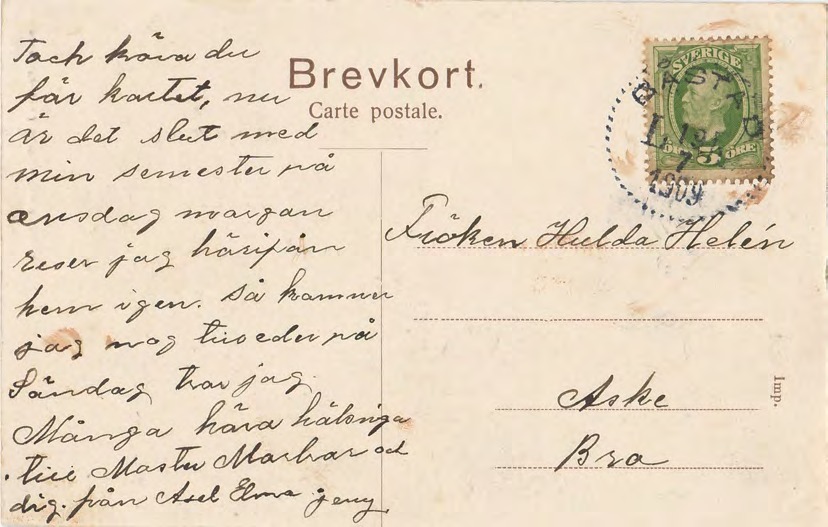 Tack kära du
får kortet, nu
är det slut med
min semester på
onsdag morgon
reser jag härifrån
hem igen. Så kommer
jag nog till eder på
Söndag tror jag.
Många kära hälsninga
till Moster Morbror och
dig. från Axel Elma Jeny
Brevkort.
Carte postale.
SVERIGE
5
ÖRE
BÅSTAD
19
7
1909
Fröken Hulda Helén
Aske
Bro
Imp.